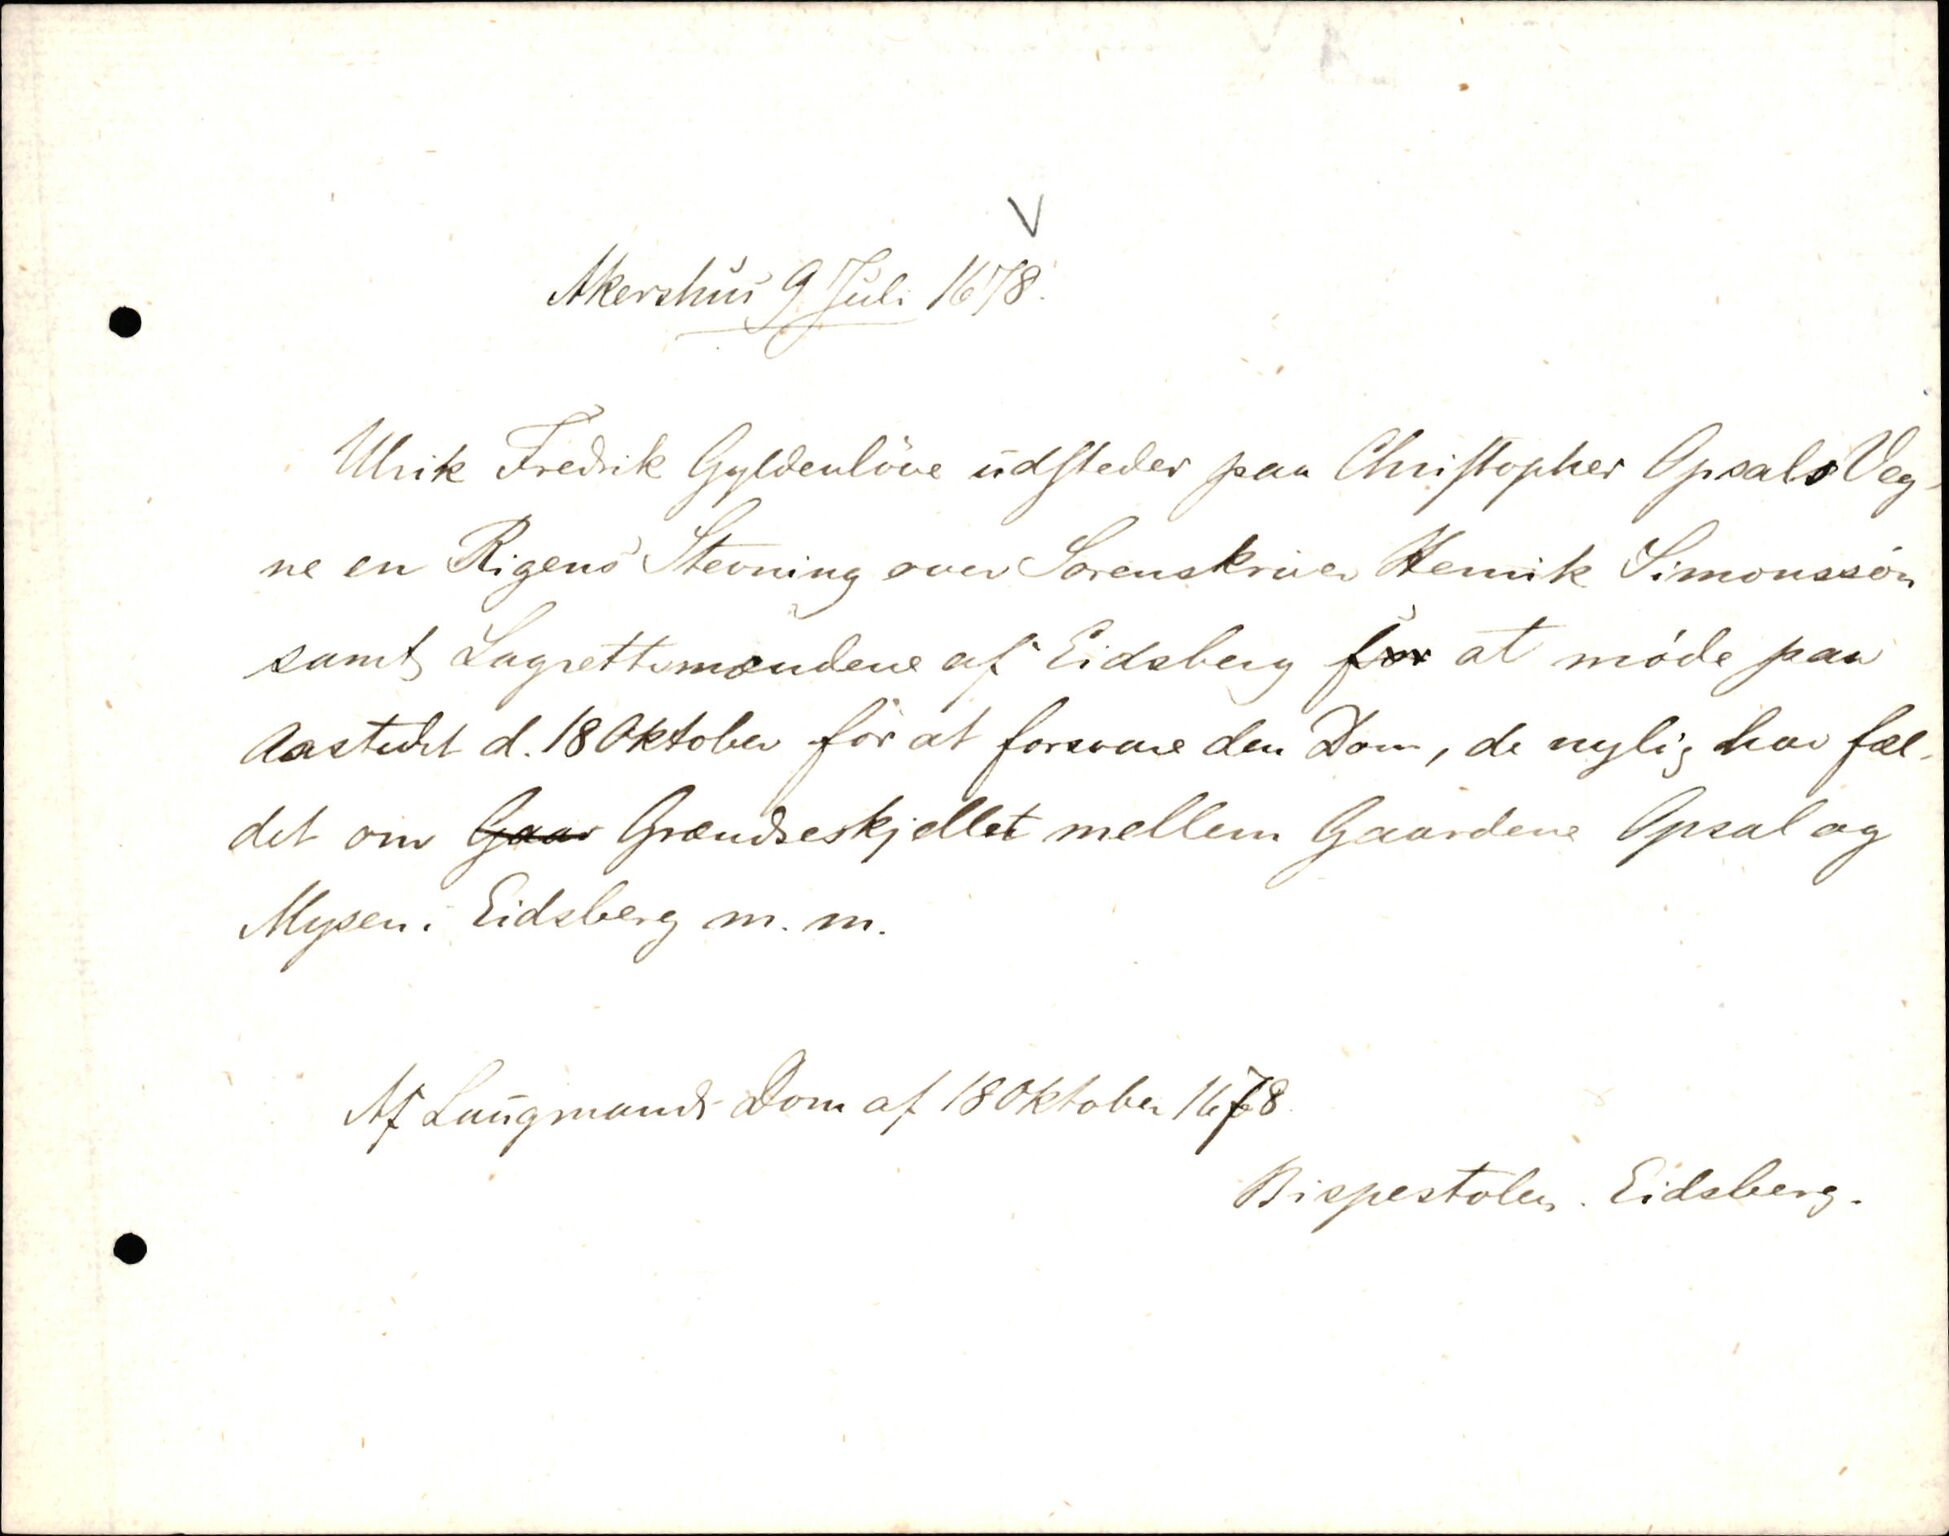 V
Akershus 9 Juli 1678.
Ulrik Fredrik Gyldenlöve udsteder paa Christopher Opsals Veg-
ne en Rigens Stevning over Sorenskriver Henrik Simonssön
samt Lagrettemændene af Eidsberg for at möde paa
Aastedet d. 18 Oktober for at forsvare den Dom, de nylig har fæl-
det om Gaar Grændseskjellet mellem Gaardene Opsal og
Mysen i Eidsberg m. m.
Af Laugmands Dom af 18 Oktober 1678
Bispestolen. Eidsberg.